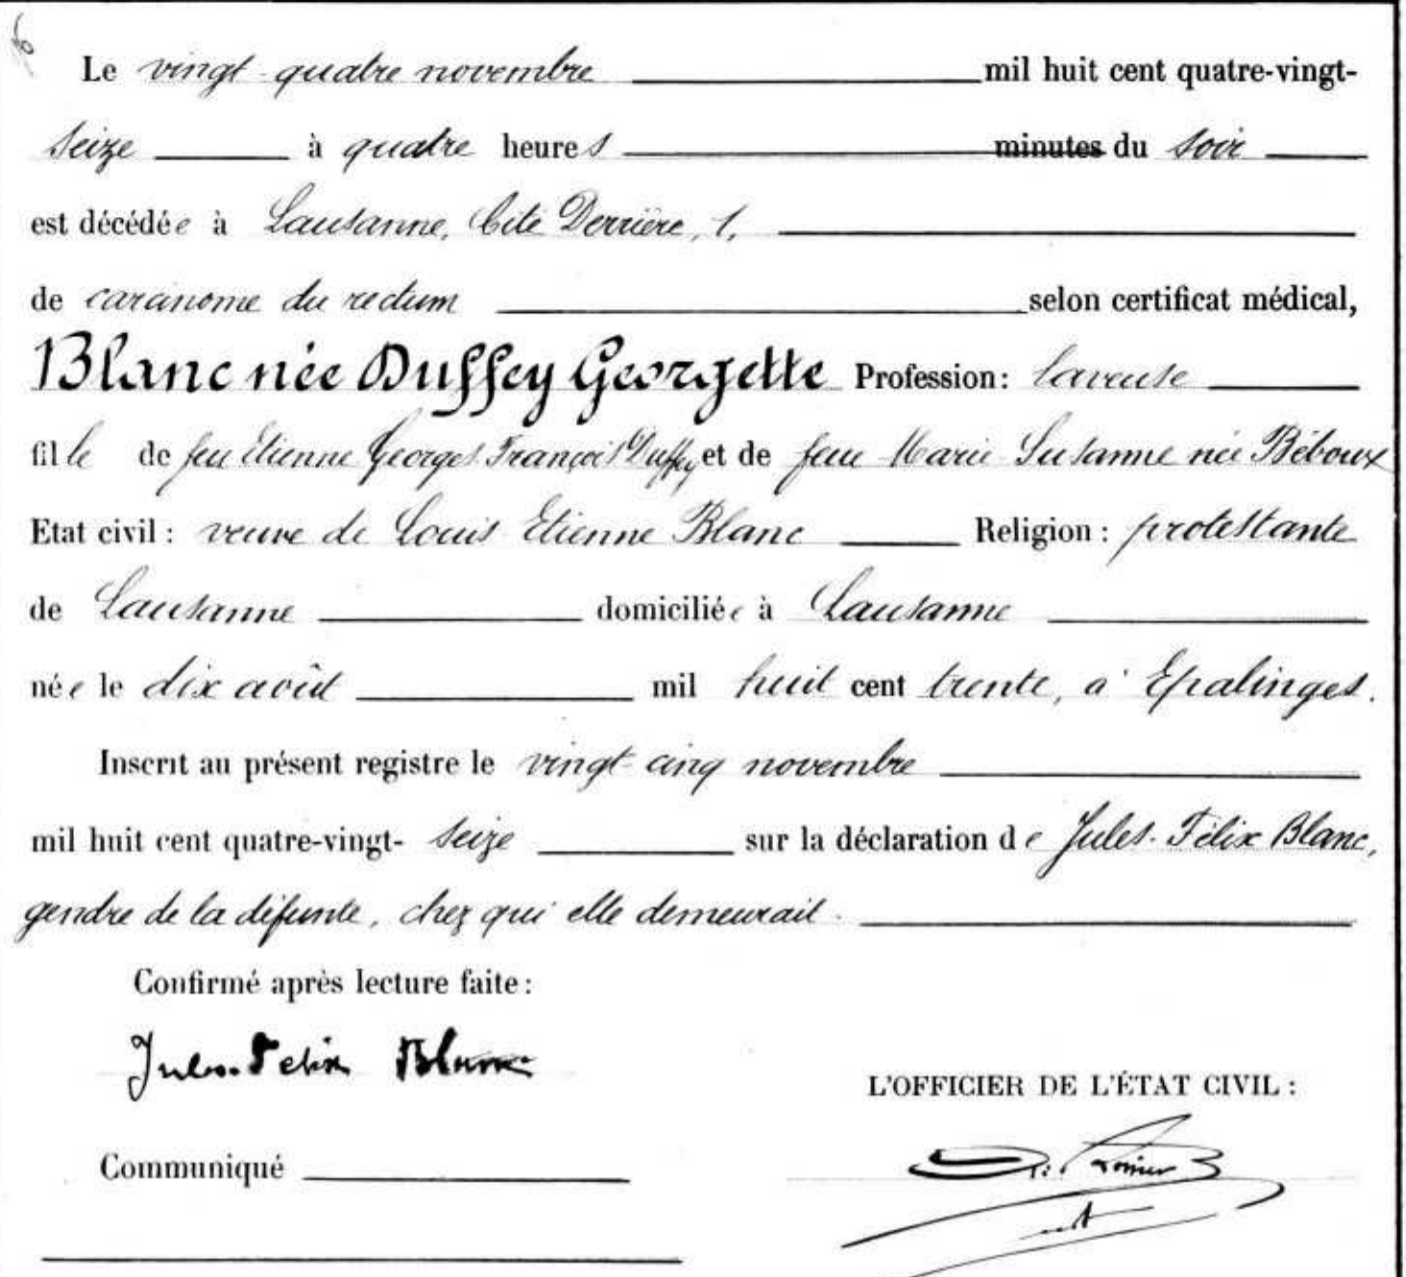 Le vingt-quatre novembre mil huit cent quatre-vingt-
seize à quatre heures minutes du soir
est décédée à Lausanne, Cité Derrière, 1,
de carcinome du rectum selon certificat médical,
Blanc née Duffey Georgette Profession: laveuse
fille de feu Etienne Georges François Duffey et de feue Marie-Susanne née Béboux
Etat civil: veuve de Louis Etienne Blanc Religion: protestante
de Lausanne domiciliée à Lausanne
née le dix août mil huit cent trente, à Epalinges.
Inscrit au présent registre le vingt-cinq novembre
mil huit cent quatre-vingt- seize sur la déclaration de Jules-Félix Blanc,
gendre de la défunte, chez qui elle demeurait.
Confirmé après lecture faite:
Jules-Felix Blanc
L'OFFICIER DE L'ÉTAT CIVIL:
Communiqué